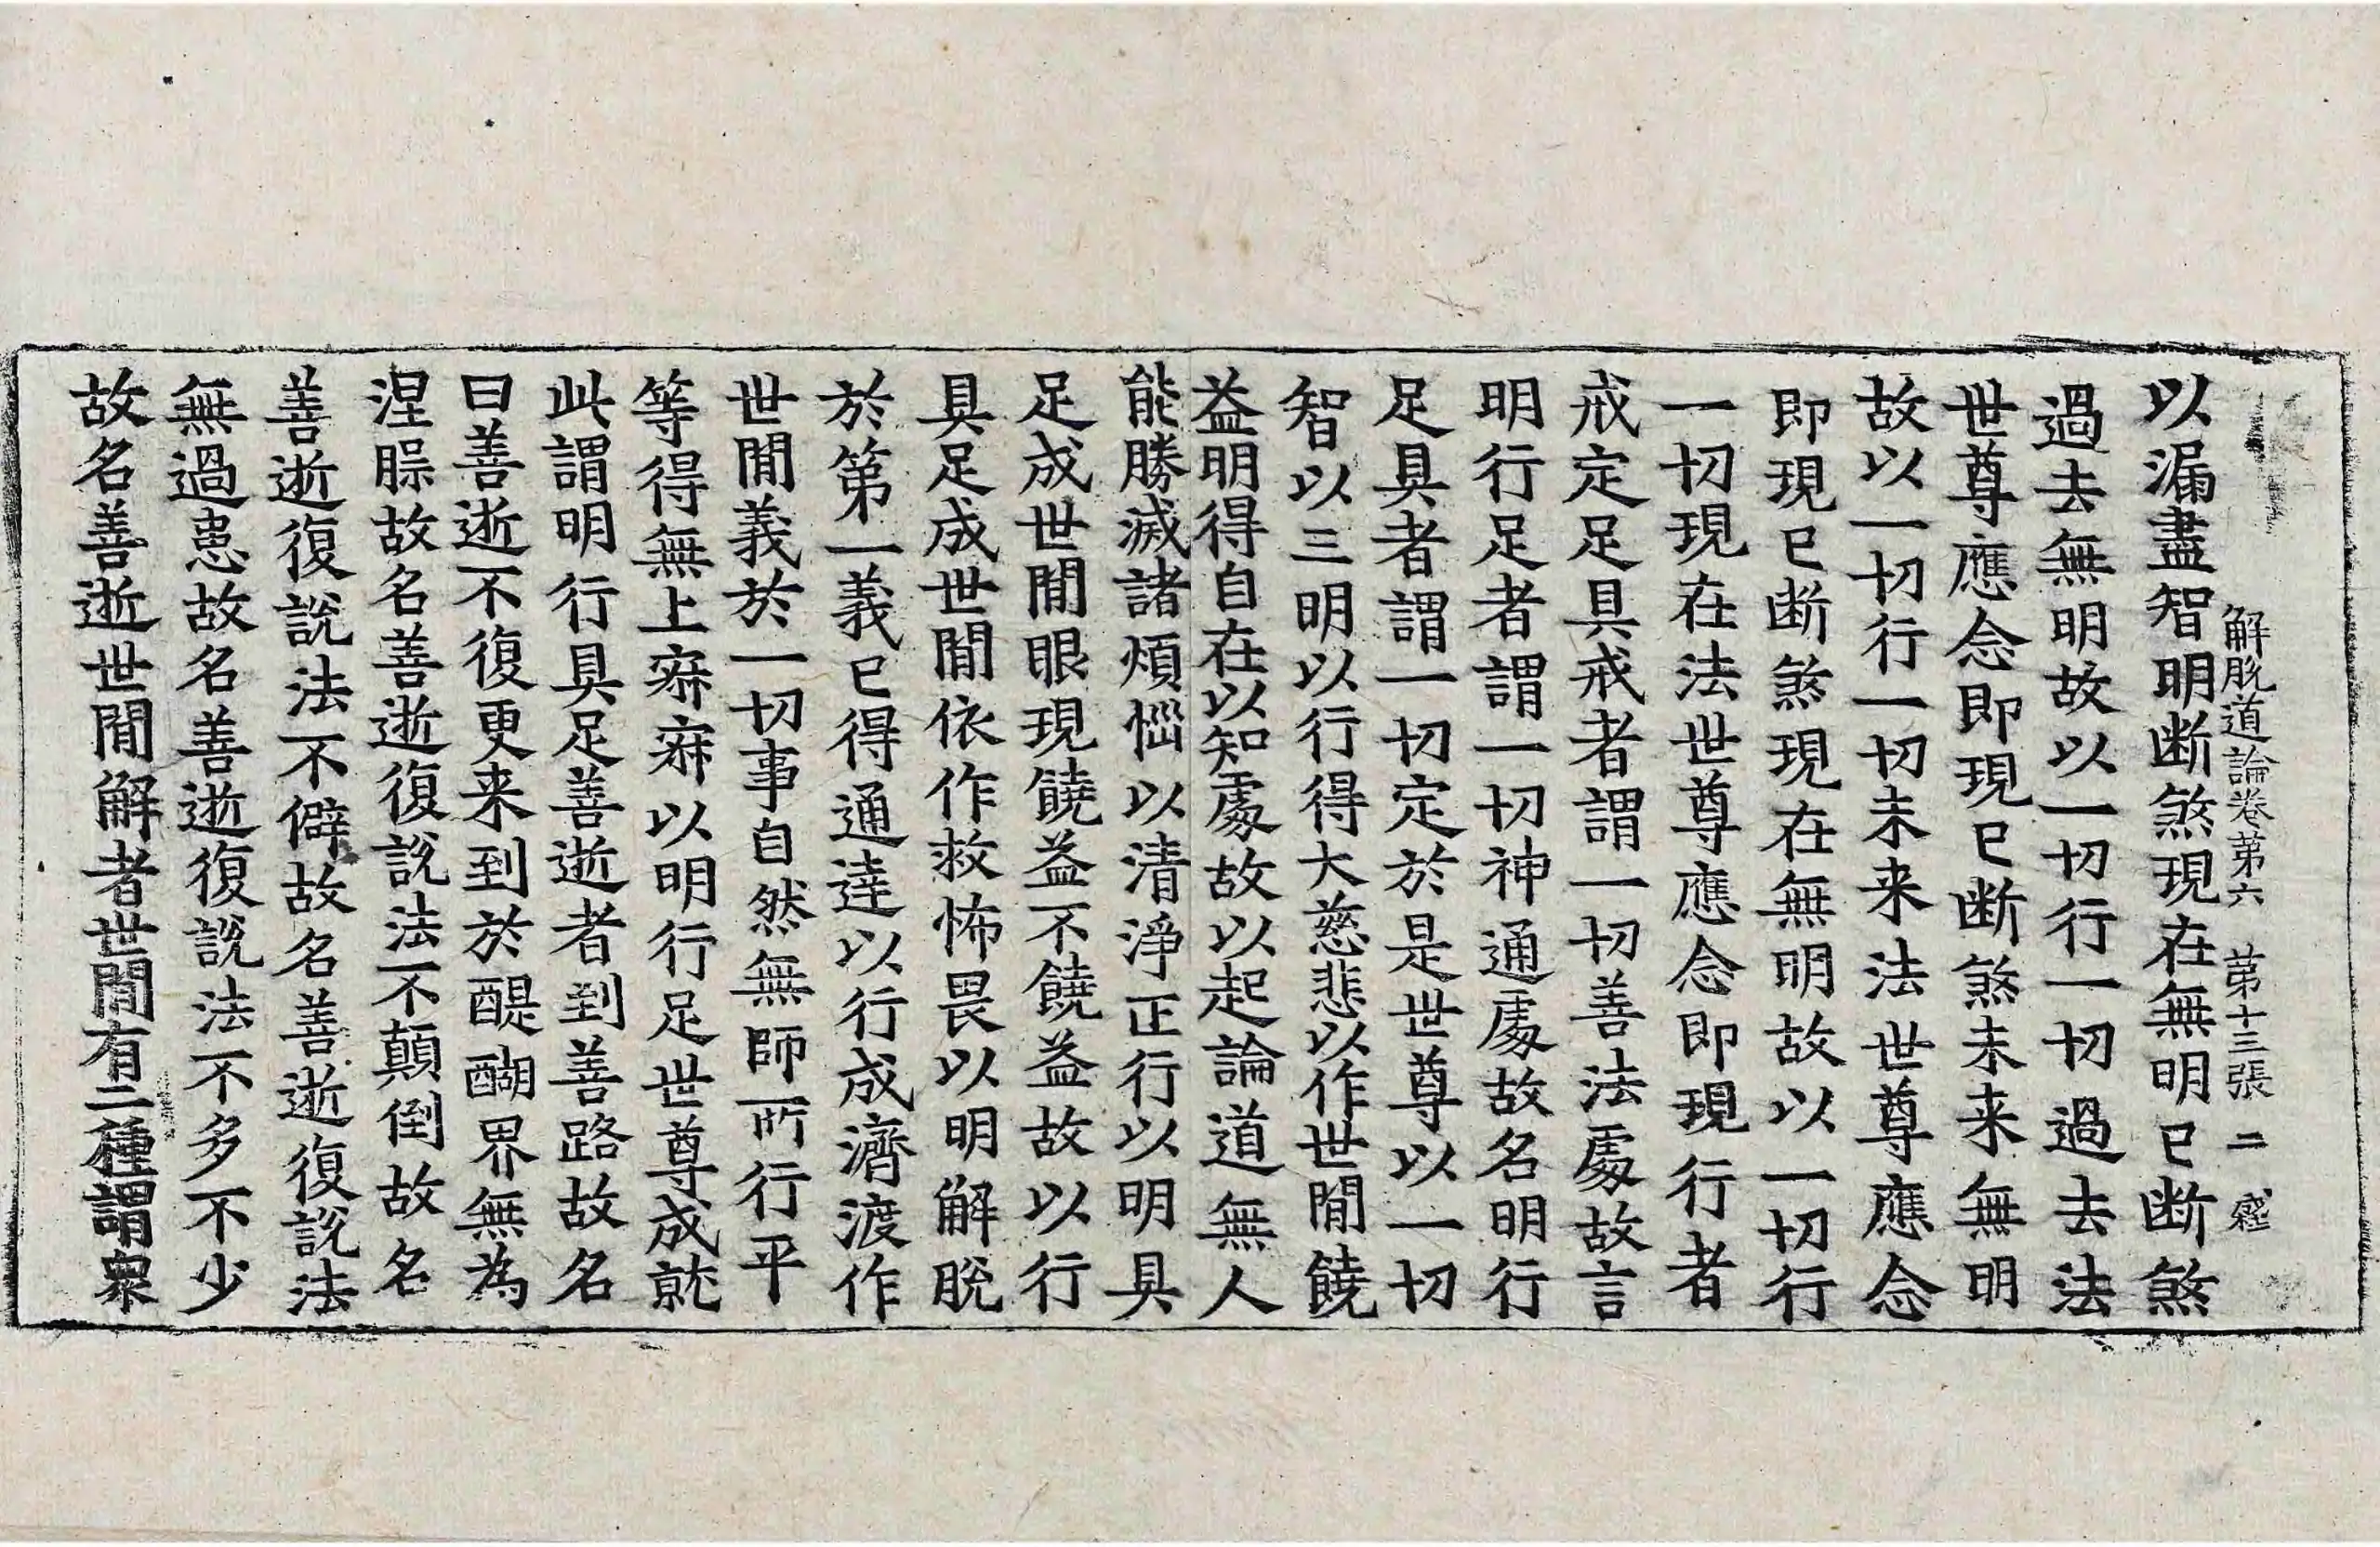 解脫道論卷第六 第十三張 二
以漏盡智明断煞現在無明已断煞
過去無明故以一切行一切過去法
世尊應念即現已断煞未来無明
故以一切行一切未来法世尊應念
即現已断煞現在無明故以一切行
一切現在法世尊應念即現行者
戒定足具戒者謂一切善法處故言
明行足者謂一切神通處故名明行
足具者謂一切定於是世尊以一切
智以三明以行得大慈悲以作世間饒
益明得自在以知處故以起論道無人
能勝滅諸煩惱以清淨正行以明具
足成世間眼現饒益不饒益故以行
具足成世間依作救怖畏以明解脫
於第一義已得通達以行成濟渡作
世間義於一切事自然無師所行平
等得無上寂寂以明行足世尊成就
此謂明行具足善逝者到善路故名
曰善逝不復更来到於醍醐界無為
涅槃故名善逝復說法不顛倒故名
善逝復說法不僻故名善逝復說法
無過患故名善逝復說法不多不少
故名善逝世間解者世間有二種謂衆